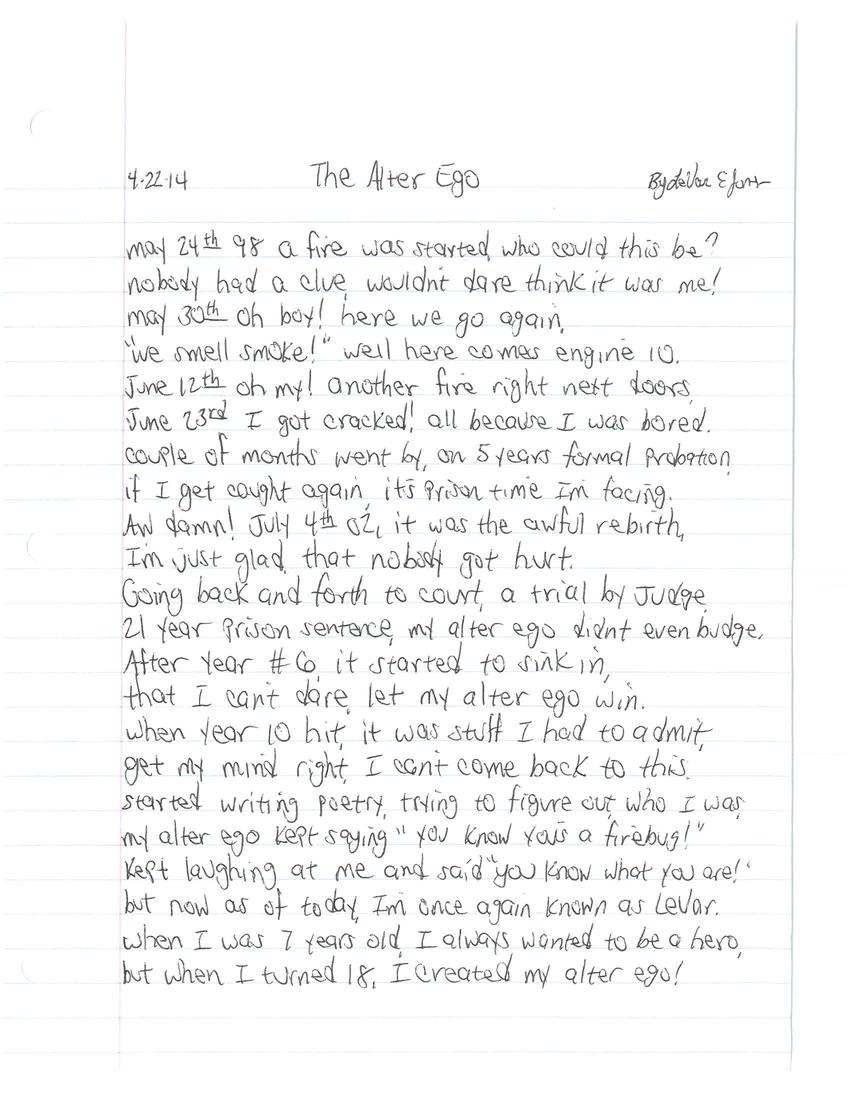 4-22-14 The Alter Ego By LeVar E Jones
may 24th 98 a fire was started, who could this be?
nobody had a clue, wouldn't dare think it was me!
may 30th oh boy! here we go again,
"we smell smoke!" well here comes engine 10.
June 12th oh my! another fire right next doors,
June 23rd I got cracked! all because I was bored.
couple of months went by, on 5 years formal probation,
if I get caught again, it's prison time Im facing.
Aw damn! July 4th 02, it was the awful rebirth,
I'm just glad that nobody got hurt.
Going back and forth to court, a trial by Judge,
21 year prison sentence, my alter ego didnt even budge.
After year #6, it started to sink in,
that I can't dare, let my alter ego win.
when year 10 hit, it was stuff I had to admit,
get my mind right, I can't come back to this.
started writing poetry, trying to figure out, who I was,
my alter ego kept saying "you know you's a firebug!"
Kept laughing at me and said "you know what you are!"
but now as of today, I'm once again known as LeVar.
when I was 7 years old, I always wanted to be a hero,
but when I turned 18, I created my alter ego!